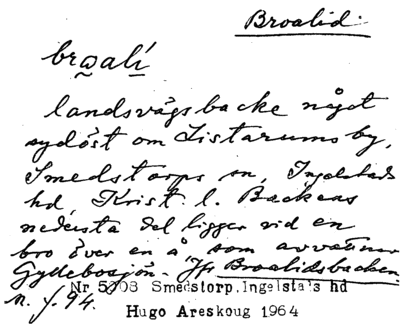 Broalid.
brωalí
landsvägsbacke något
sydöst om Listarums by,
Smedstorps sn, Ingelstads
hd, Krist. l. Backens
nedersta del ligger vid en
bro över en å som avvattnar
Gyllebosjön. Jfr Broalidsbacken.
n. f. 94.
Nr 5003 Smedstorp, Ingelsta's hd
Hugo Areskoug 1964